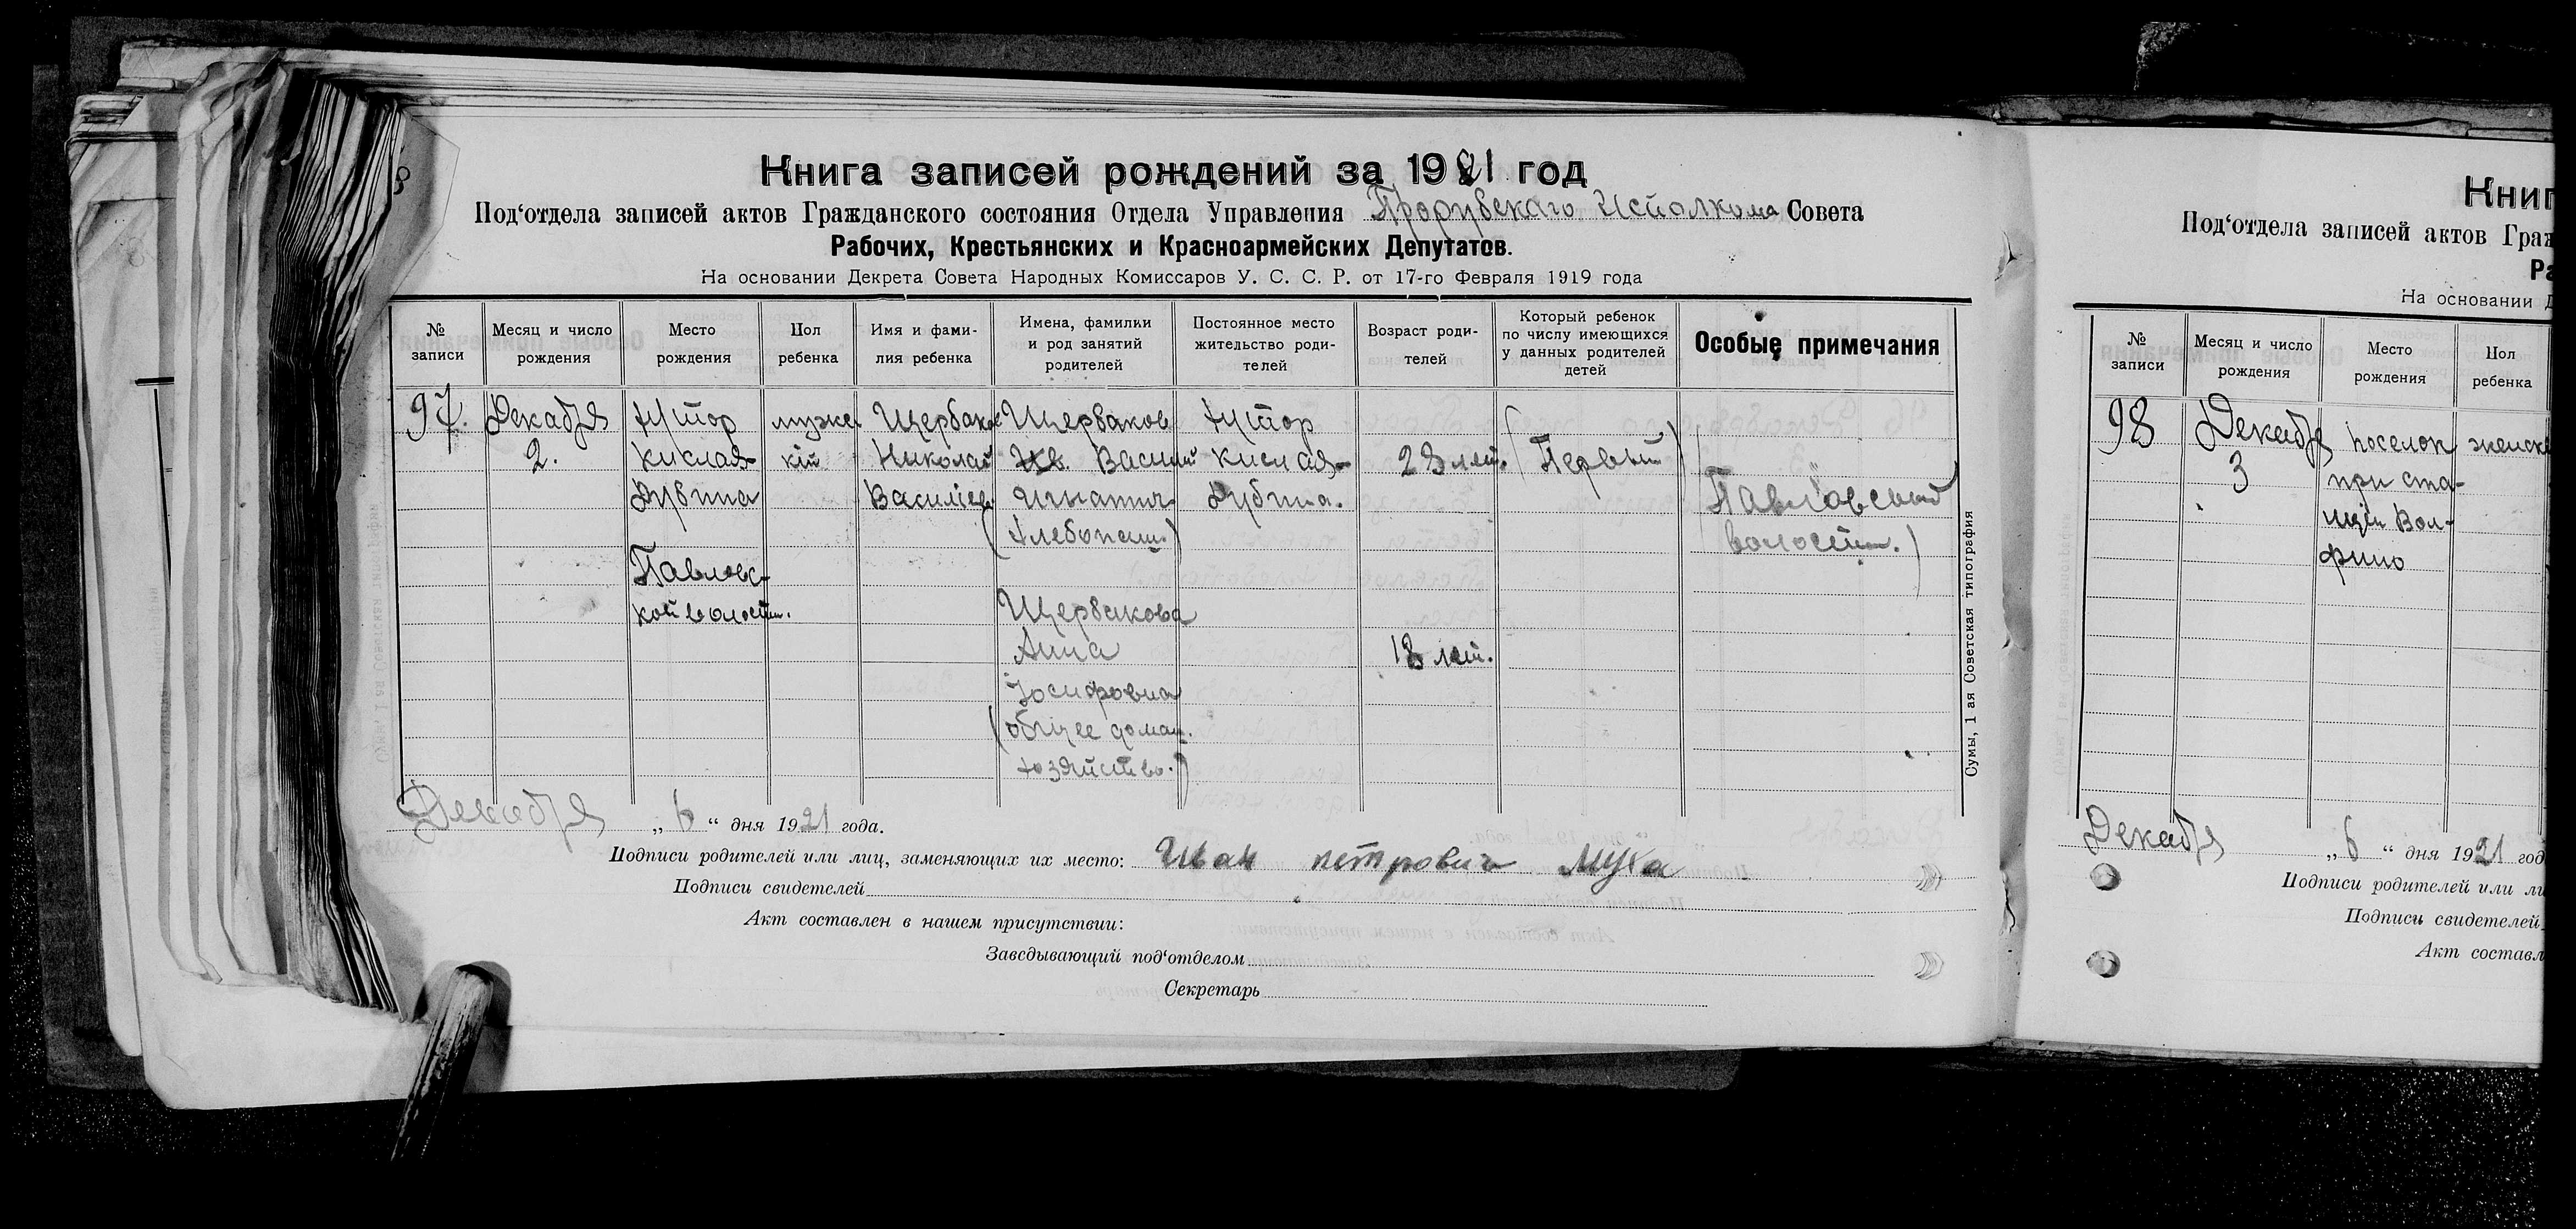 Книга записей рождений за 1921 год
Под‘отдела записей актов Гражданского состояния Отдела Управления Прорувскаго Исполкома Совета
Рабочих, Крестьянских и Красноармейских Депутатов.
На основании Декрета Совета Народных Комиссаров У. С. С. Р. от 17-го Февраля 1919 года
№ записи
Месяц и число рождения
Место рождения
Пол ребенка
Имя и фами-
лия ребенка
Имена, фамилии
и род занятий
родителей
Постоянное место
жительство роди-
телей
Возраст роди-
телей
Который ребенок
по числу имеющихся
у данных родителей
детей
Особые примечания
97.
Декабря
2.
хутор
Кислая-
Дубина
Павловс-
кой волости.
мужс
кій
Щербаков
Николай
Василіев
Щербаков
Василій
Игнатич
(хлебопаш.)
Щербакова
Анна
Іосифовна
(общее домаш.
хозяйство.)
хутор
Кислая-
Дубина.
28 лет.
18 лет.
(Первый)
(Павловской
волости.)
Сумы, 1 ая Советская типография
Декабря „6“ дня 1921 года.
Подписи родителей или лиц, заменяющих их место: Иван петрович Муха
Подписи свидетелей
Акт составлен в нашем присутствии:
Заведывающий под‘отделом
Секретарь
Книг
Под‘отдела записей актов Граж
Ра
На основании Д
№ записи
Месяц и число рождения
Место рождения
Пол ребенка
98
Декабря
3
поселок
при ста-
нціи Вол-
фино
женск
Декабря „6“ дня 1921 год
Подписи родителей или ли
Подписи свидетелей
Акт составл